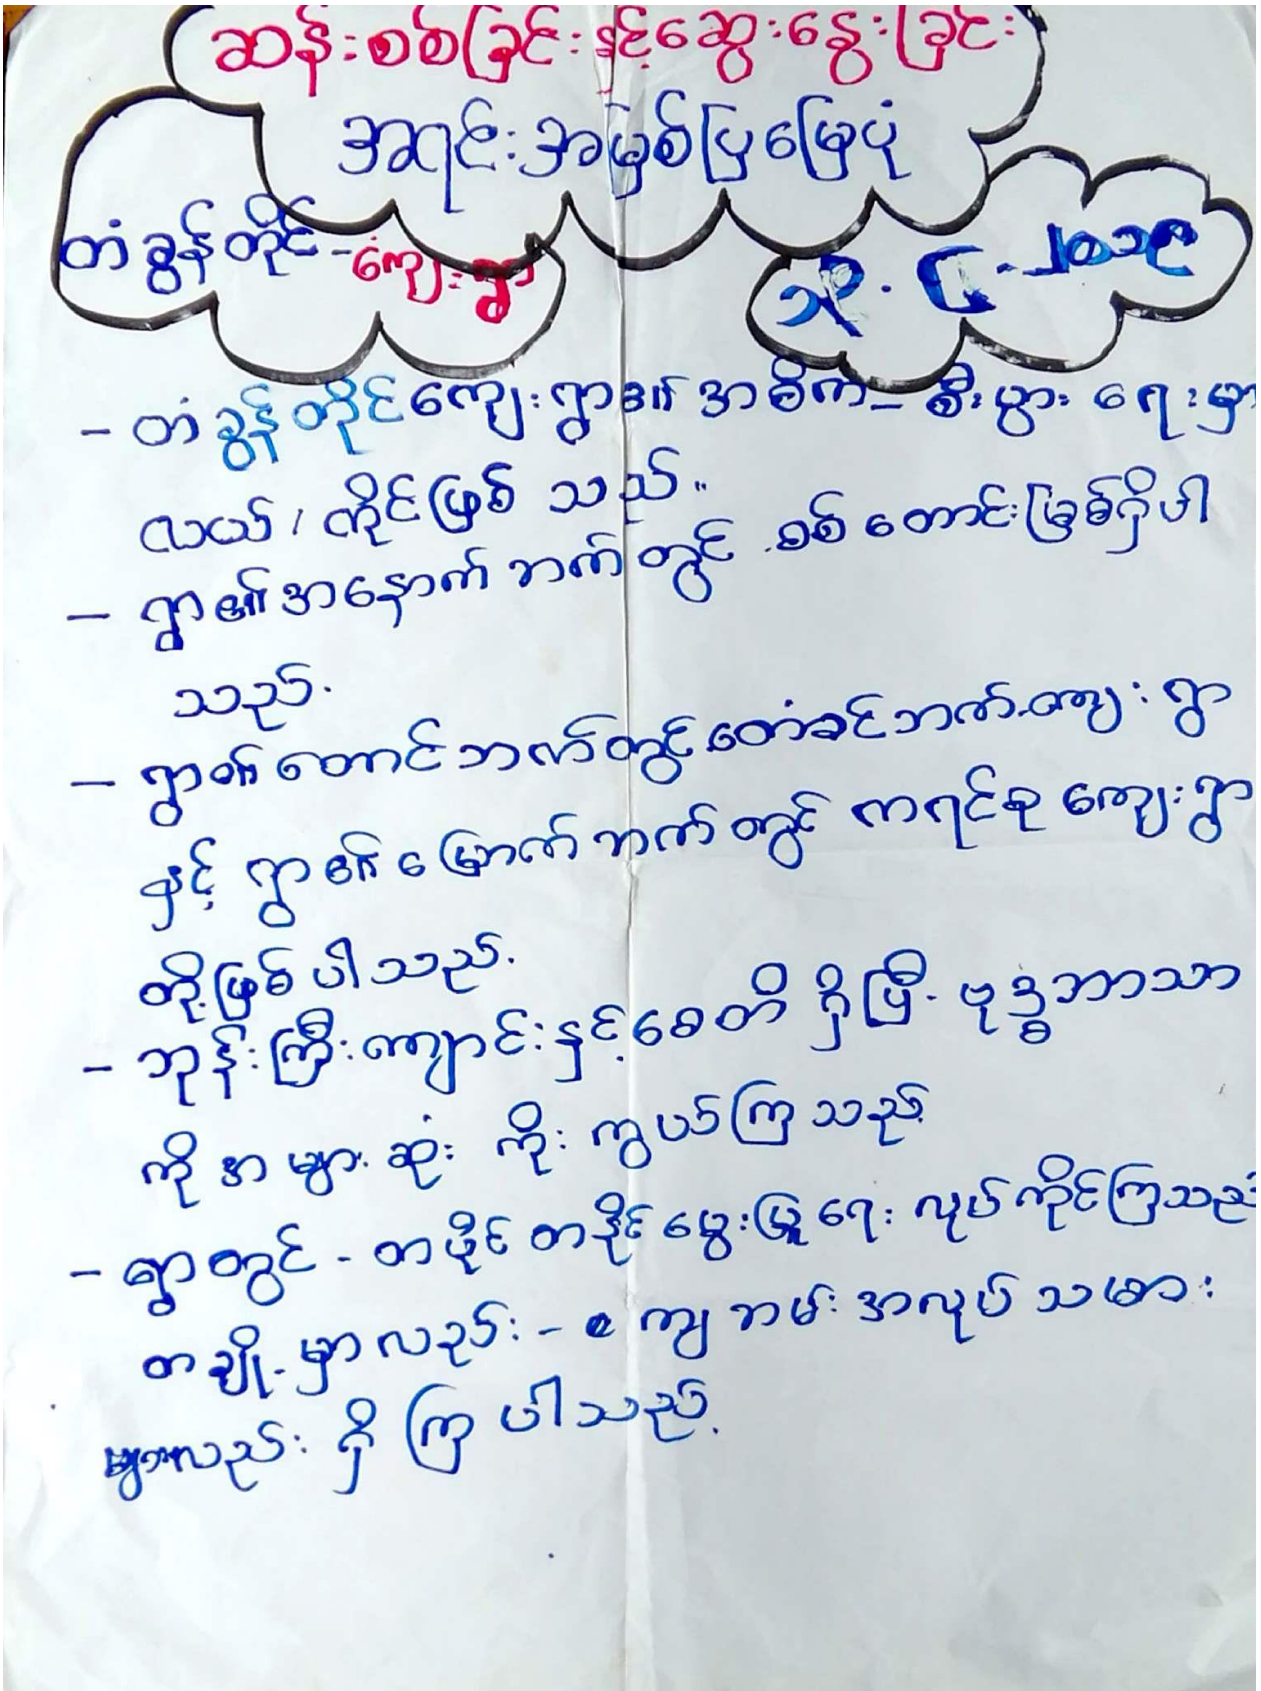 ဆန်းစစ်ခြင်းနှင့်ဆွေးနွေးခြင်း
အရင်းအမြစ်ပြမြေပုံ
တံခွန်တိုင်-ကျေးရွာ
၂၀၁၉
- တံခွန်တိုင်ကျေးရွာ၏အဓိက-စီးပွားရေးမှာ
လယ်/ကိုင်ဖြစ်သည်။
- ရွာ၏အနောက်ဘက်တွင် စစ်တောင်းမြစ်ရှိပါ
သည်.
- ရွာ၏တောင်ဘက်တွင်တေံခင်ဘက်.ကျေးရွာ
နှင့် ရွာ၏မြောက်ဘက်တွင် ကရင်စုကျေးရွာ
တို့ဖြစ်ပါသည်.
- ဘုန်းကြီးကျောင်းနှင့်စေတီရှိပြီ. ဗုဒ္ဓဘာသာ
ကိုအများဆုံး ကိုးကွယ်ကြသည့်
- ရွာတွင် - တပိုင်တနိုင်မွေးမြူရေးလုပ်ကိုင်ကြသည်
တချို့မှာလည်း - ကျဘမ်းအလုပ်သမား
များလည်းရှိကြပါသည့်